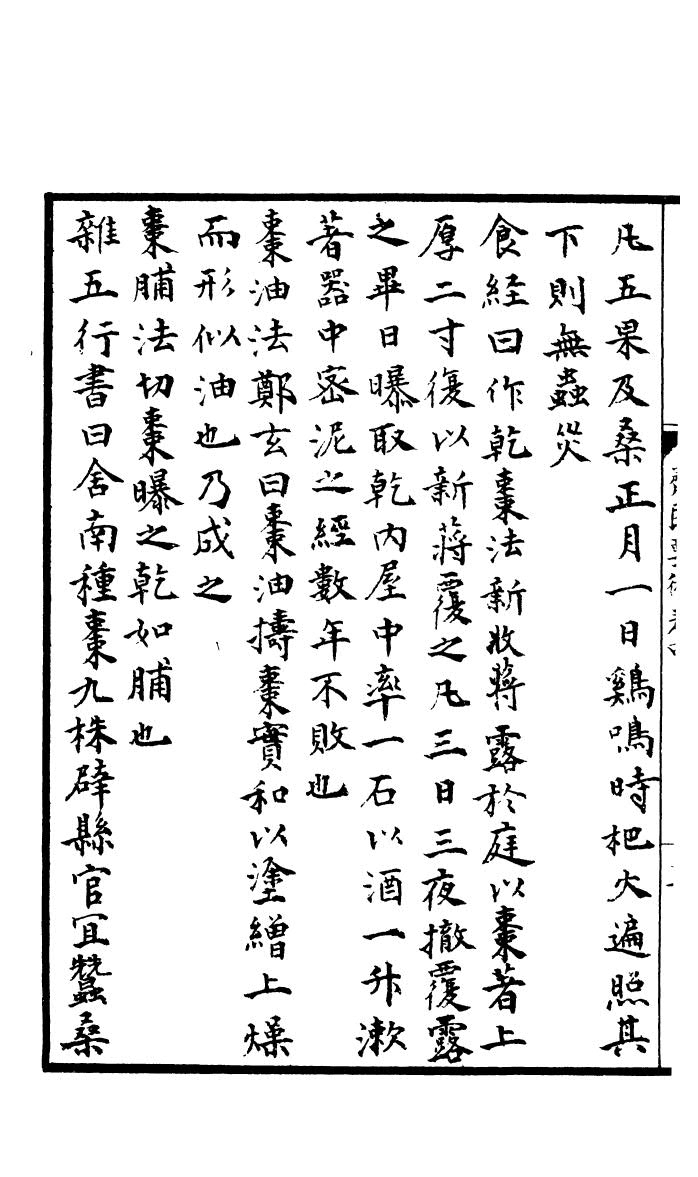 凡五果及桑正月一日鷄鳴時把火遍照其
下則無蟲災
食経曰作乾棗法新收蔣露於庭以棗著上
厚二寸復以新蔣覆之凡三日三夜撤覆露
之畢日曝取乾內屋中率一石以酒一升漱
著器中宻泥之經數年不敗也
棗油法鄭玄曰棗油擣棗實和以塗繒上燥
而形似油也乃成之
棗脯法切棗曝之乾如脯也
雜五行書曰舍南種棗九株辟縣官冝蠶桑